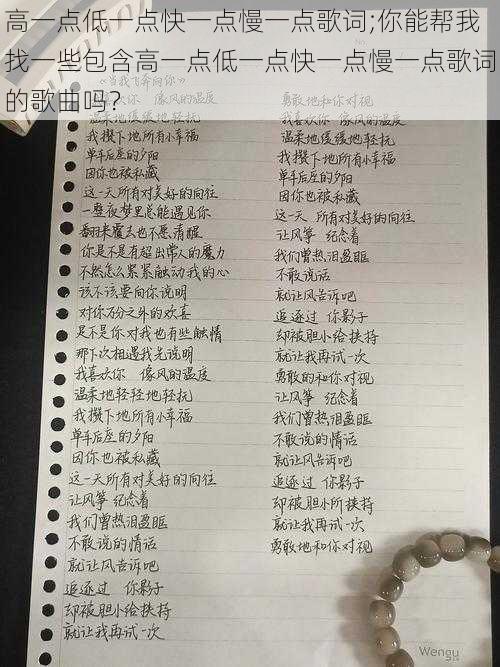 高一点低一点快一点慢一点歌词;你能帮我
找一些包含高一点低一点快一点慢一点歌词
的歌曲吗?
《当我飞奔向你》
我喜欢你 像风的温度
温柔地缓缓地轻抚
我摄下地所有小幸福
单车后座的夕阳
因你也被私藏
这一天所有对美好的向往
一整夜梦里总能遇见你
翻来覆去也不愿清醒
你是不是有超出常人的魔力
不然怎么紧紧触动我的心
该不该要向你说明
对你万分之外的欢喜
是不是你对我也有些触情
那下次相遇我先说明
我喜欢你 像风的温度
温柔地轻轻地轻抚
我摄下地所有小幸福
单车后座的夕阳
因你也被私藏
这一天所有对美好的向往
让风筝 纪念着
我们曾热泪盈眶
不敢说的情话
就让风告诉吧
追逐过 你影子
却被胆小给挟持
就让我再试一次
勇敢地和你对视
我喜欢你 像风的温度
温柔地缓缓地轻抚
我摄下地所有小幸福
单车后座的夕阳
因你也被私藏
这一天 所有对美好的向往
让风筝 纪念着
我们曾热泪盈眶
不敢说话
就让风告诉吧
追逐过 你影子
却被胆小给挟持
就让我再试一次
勇敢的和你对视
让风筝 纪念着
我们曾热泪盈眶
不敢说的情话
就让风告诉吧
追逐过 你影子
却被胆小所挟持
就让我再试一次
勇敢地和你对视
Wengu